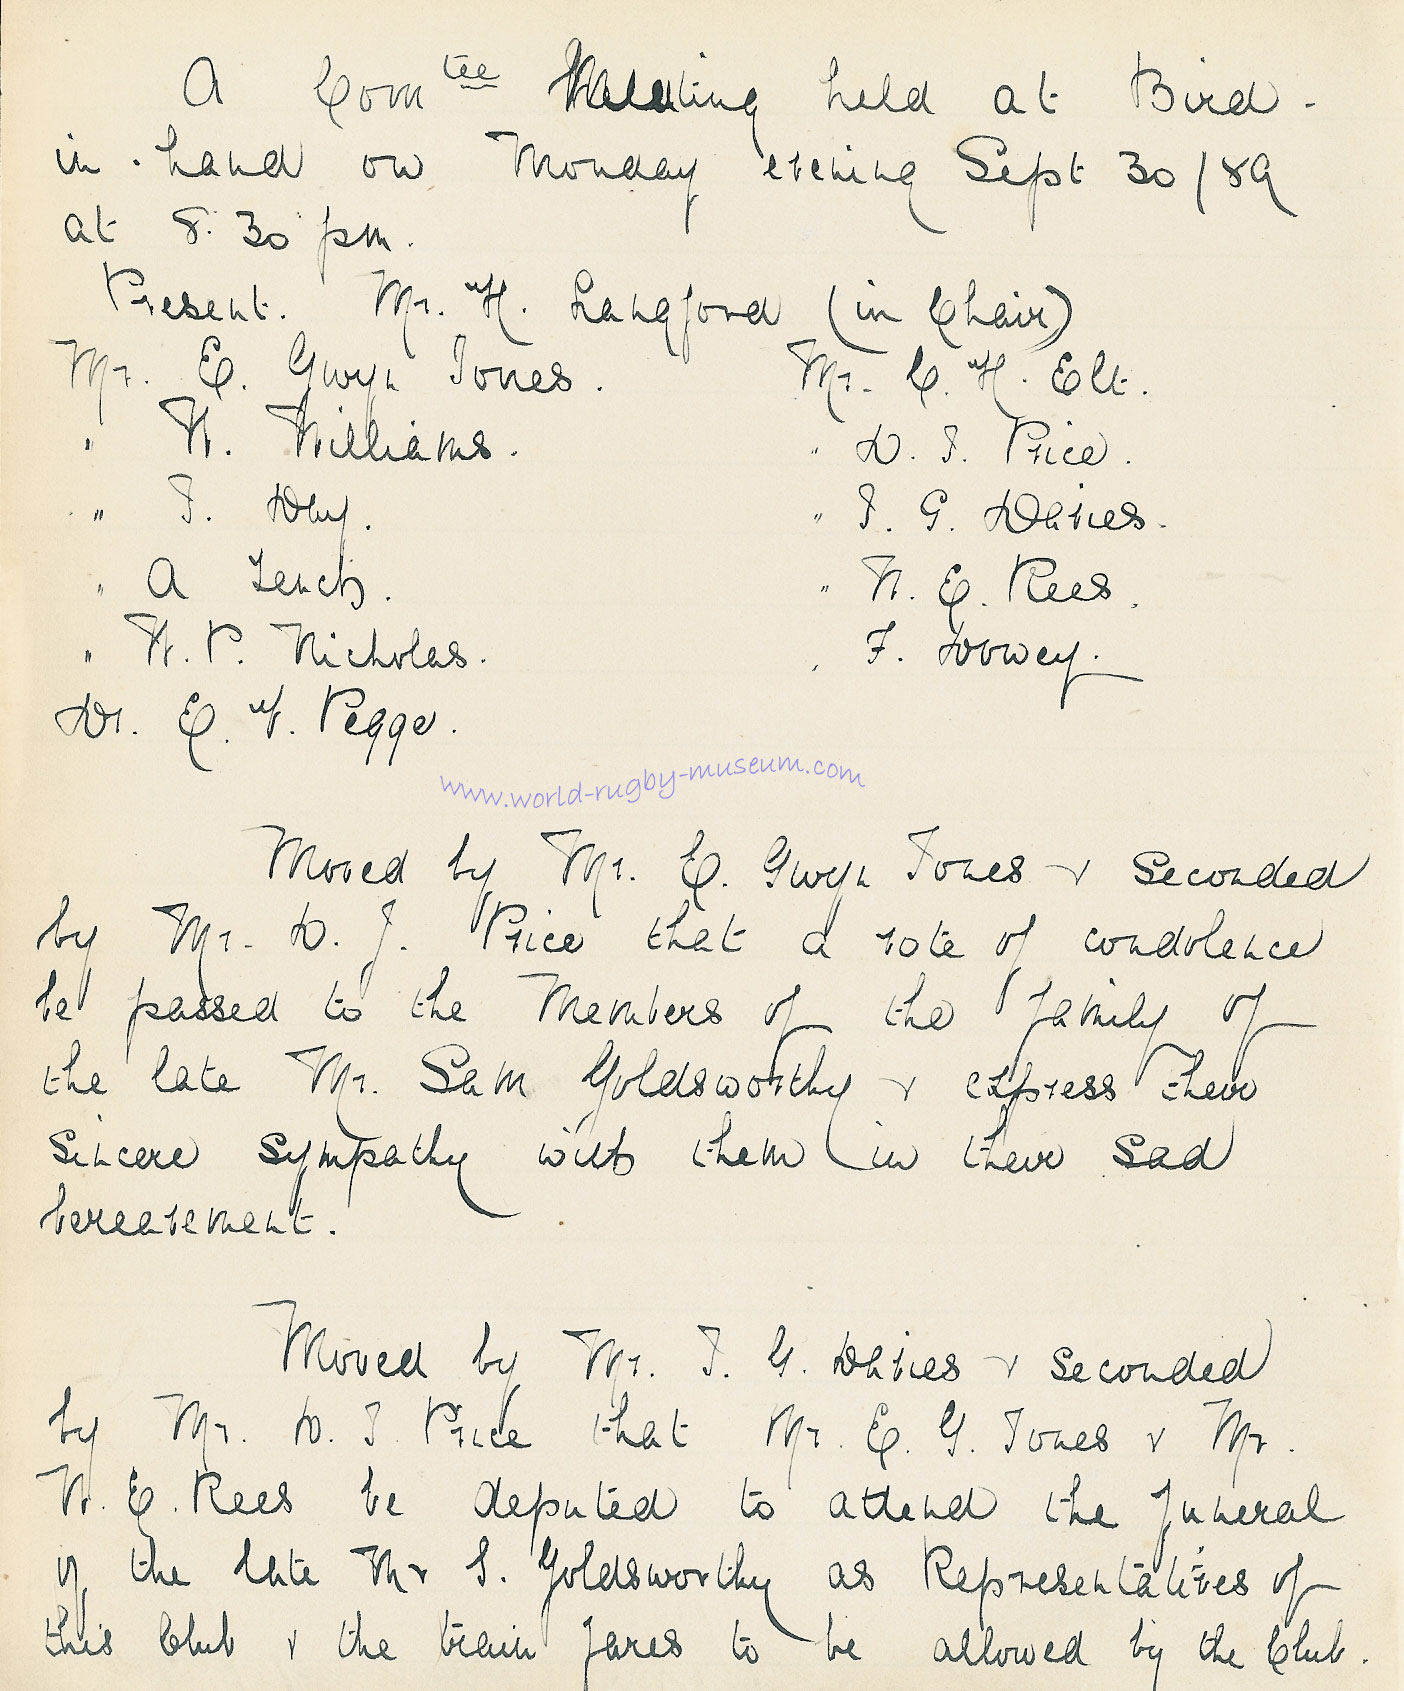 A Comtee Meeting held at Bird-
in-hand on Monday evening Sept 30/89
at 8.30 pm.
Present. Mr. H. Langford (in Chair)
Mr. E. Gwyn Jones. Mr. C. H. Elt.
" W. Williams. " D. J. Price.
" J. Dhy. " J. G. Davies.
" A Lench. " W. E. Rees.
" W. P. Nicholas. " F. Dovey.
Dr. E. V. Pegge.
www.world-rugby-museum.com
Moved by Mr. E. Gwyn Jones & Seconded
by Mr. D. J. Price that a vote of condolence
be passed to the Members of the family of
the late Mr. Sam Goldsworthy & express their
Sincere Sympathy with them in their Sad
bereavement.
Moved by Mr. J. G. Davies & Seconded
by Mr. D. J. Price that Mr. E. G. Jones & Mr.
W. E. Rees be deputed to attend the funeral
of the late Mr S. Goldsworthy as Representatives of
this Club & the train fares to be allowed by the Club.